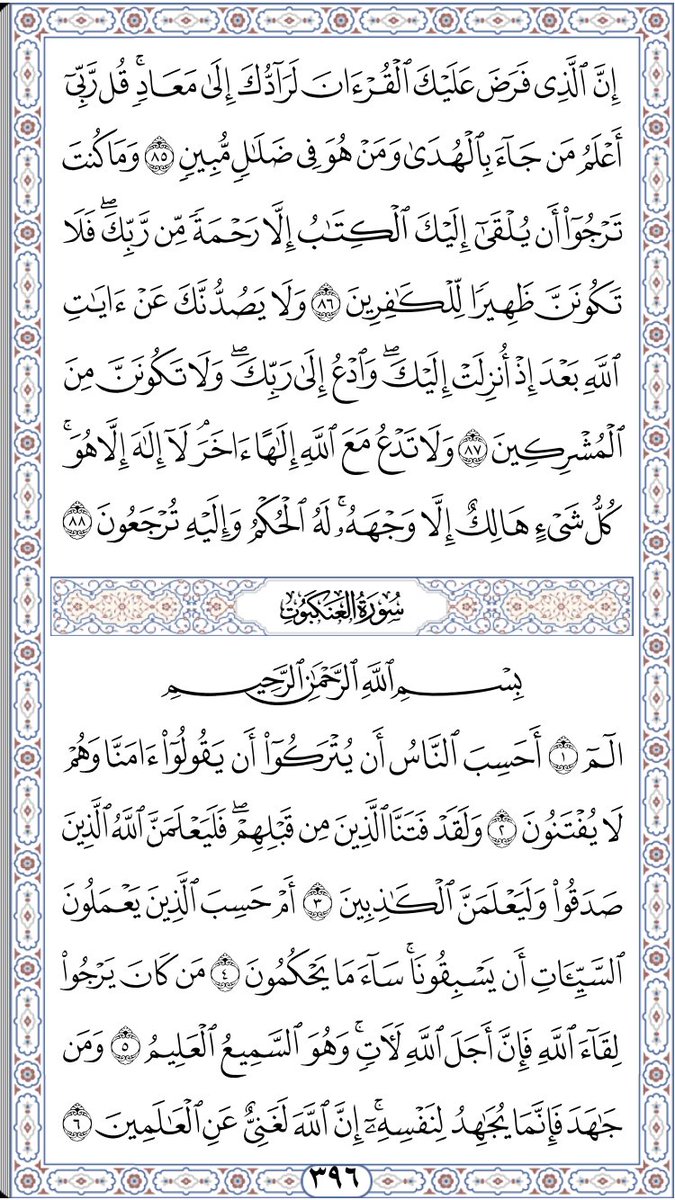 إِنَّ ٱلَّذِى فَرَضَ عَلَيْكَ ٱلْقُرْءَانَ لَرَآدُّكَ إِلَىٰ مَعَادٍۚ قُل رَّبِّىٓ
أَعْلَمُ مَن جَآءَ بِٱلْهُدَىٰ وَمَنْ هُوَ فِى ضَلَٰلٍ مُّبِينٍ ٨٥ وَمَا كُنتَ
تَرْجُوٓا۟ أَن يُلْقَىٰٓ إِلَيْكَ ٱلْكِتَٰبُ إِلَّا رَحْمَةً مِّن رَّبِّكَۖ فَلَا
تَكُونَنَّ ظَهِيرًا لِّلْكَٰفِرِينَ ٨٦ وَلَا يَصُدُّنَّكَ عَنْ ءَايَٰتِ
ٱللَّهِ بَعْدَ إِذْ أُنزِلَتْ إِلَيْكَۖ وَٱدْعُ إِلَىٰ رَبِّكَۖ وَلَا تَكُونَنَّ مِنَ
ٱلْمُشْرِكِينَ ٨٧ وَلَا تَدْعُ مَعَ ٱللَّهِ إِلَٰهًا ءَاخَرَۘ لَآ إِلَٰهَ إِلَّا هُوَۚ
كُلُّ شَىْءٍ هَالِكٌ إِلَّا وَجْهَهُۥۚ لَهُ ٱلْحُكْمُ وَإِلَيْهِ تُرْجَعُونَ ٨٨
سُورَةُ العَنكَبُوت
بِسْمِ ٱللَّهِ ٱلرَّحْمَٰنِ ٱلرَّحِيمِ
الٓمٓ ١ أَحَسِبَ ٱلنَّاسُ أَن يُتْرَكُوٓا۟ أَن يَقُولُوٓا۟ ءَامَنَّا وَهُمْ
لَا يُفْتَنُونَ ٢ وَلَقَدْ فَتَنَّا ٱلَّذِينَ مِن قَبْلِهِمْۖ فَلَيَعْلَمَنَّ ٱللَّهُ ٱلَّذِينَ
صَدَقُوا۟ وَلَيَعْلَمَنَّ ٱلْكَٰذِبِينَ ٣ أَمْ حَسِبَ ٱلَّذِينَ يَعْمَلُونَ
ٱلسَّيِّـَٔاتِ أَن يَسْبِقُونَاۚ سَآءَ مَا يَحْكُمُونَ ٤ مَن كَانَ يَرْجُوا۟
لِقَآءَ ٱللَّهِ فَإِنَّ أَجَلَ ٱللَّهِ لَءَاتٍۚ وَهُوَ ٱلسَّمِيعُ ٱلْعَلِيمُ ٥ وَمَن
جَٰهَدَ فَإِنَّمَا يُجَٰهِدُ لِنَفْسِهِۦٓۚ إِنَّ ٱللَّهَ لَغَنِىٌّ عَنِ ٱلْعَٰلَمِينَ ٦
٣٩٦